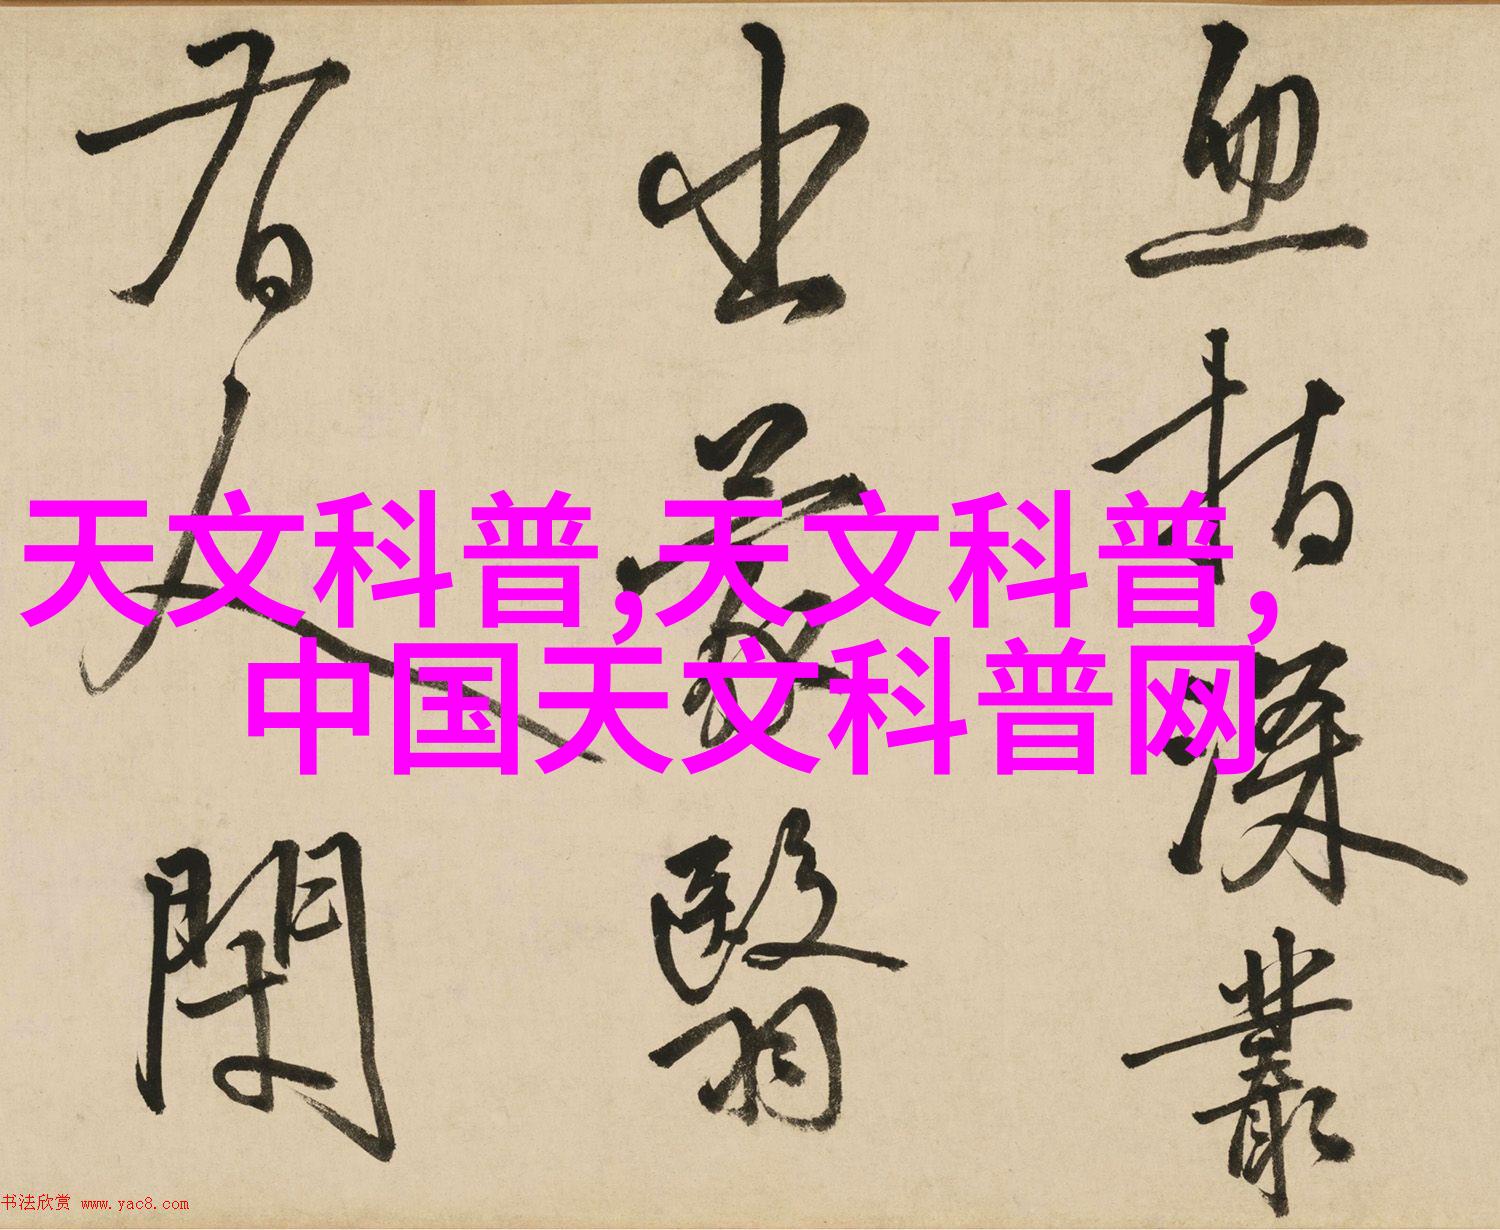 天文科普,天文科普,
中国天文科普网
血指深叢
出蒙翳
人
书法欣赏 www.yac8.com